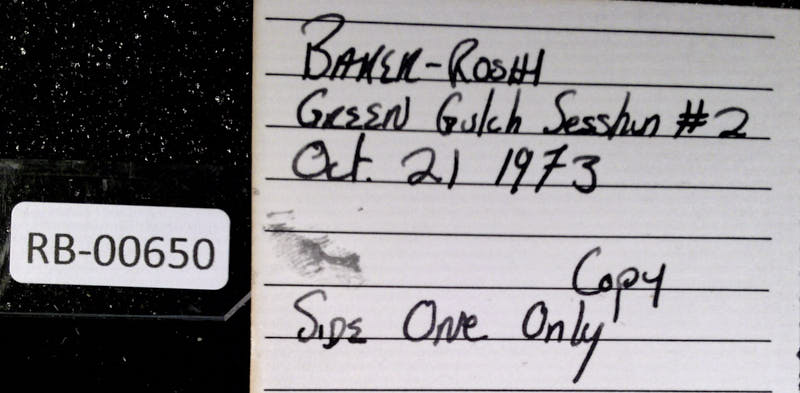 BAKER-ROSHI
GREEN Gulch Sesshin #2
Oct. 21 1973
RB-00650
Copy
SIDE ONE Only